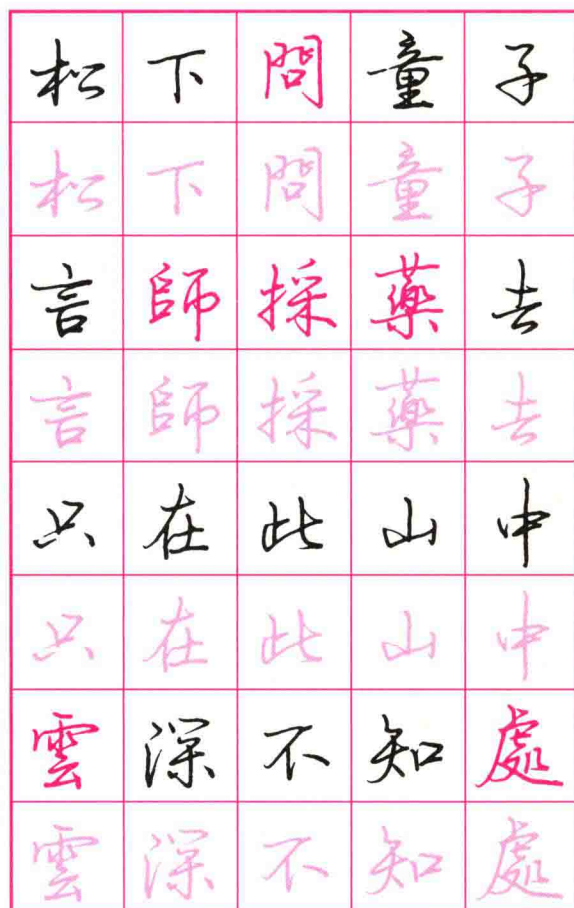 松下問童子
松下問童子
言師採藥去
言師採藥去
只在此山中
只在此山中
雲深不知處
雲深不知處